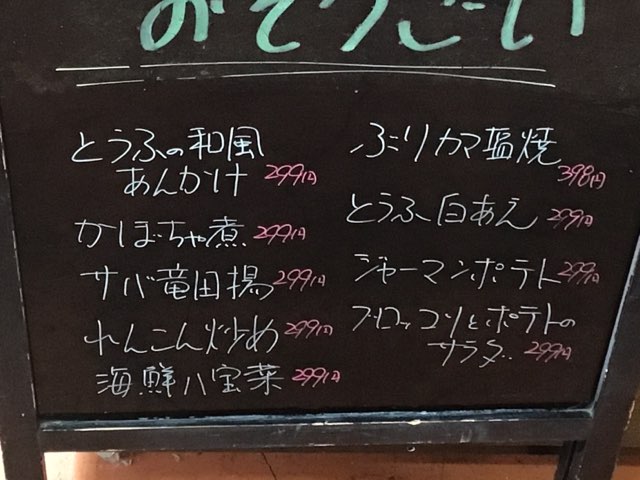 おそうざい
とうふの和風
あんかけ 299円
かぼちゃ煮 299円
サバ竜田揚 299円
れんこん炒め 299円
海鮮八宝菜 299円
ぶりカマ塩焼
398円
とうふ白あえ 299円
ジャーマンポテト 299円
ブロッコリとポテトの
サラダ 299円